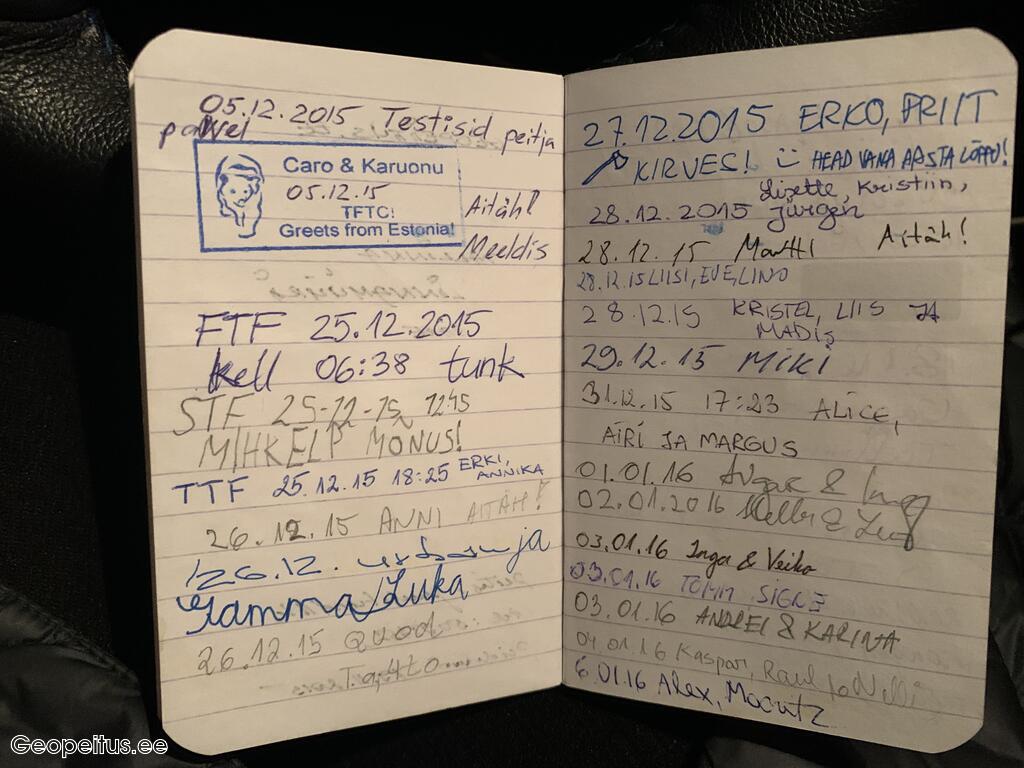 05.12.2015 Testisid peitja
pawel
Caro & Karuonu
05.12.15
TFTC!
Greets from Estonia!
Aitäh!
Meeldis
FTF 25.12.2015
kell 06:38 tunk
STF 25-12-15 1245
MIHKELP MÕNUS!
TTF 25.12.15 18:25 ERKI,
ANNIKA
26.12.15 ANNI AITÄH!
26.12. ja
Gamma/Luka
26.12.15 QUOD
27.12.2015 ERKO, PRIIT
KIRVES! HEAD VANA AASTA LÕPPU!
Lizette, Kristiin,
28.12.2015 Jürgen
28.12.15 Martti Aitäh!
28.12.15 LIISI, EVE, LINO
28.12.15 KRISTEL, LIIS JA
MADIS
29.12.15 MIKI
31.12.15 17:23 ALICE,
AIRI JA MARGUS
01.01.16 &
02.01.2016 &
03.01.16 Inga & Veiko
03.01.16 TOMM SIGRE
03.01.16 ANDREI & KARINA
04.01.16 Kaspar, Raul ja Nelli
6.01.16 Alex,
Geopeitus.ee